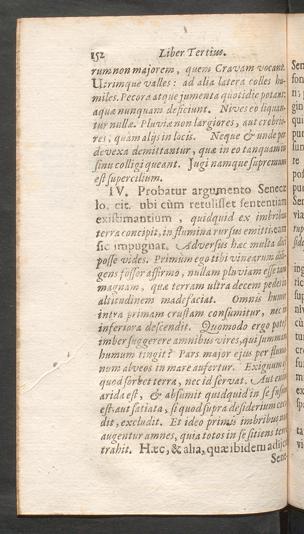 152 Liber Tertius.
rum non majorem, quem Cravam vocant.
Utrimque valles: ad alia latera colles hu-
miles. Pecora atque jumenta quotidie potant:
aqua nunquam deficiunt. Nives eo liquan-
tur nullæ. Pluviæ non largiores, aut crebrio-
res, quàm alijs in locis. Neque & unde per
devexa demittantur, quæ in eo tanquam in
sinu colligi queant. Jugi namque supremum
est supercilium.
IV. Probatur argumento Senecæ
lo. cit. ubi cùm retulisset sententiam
existimantium, quidquid ex imbribus
terra concipit, in flumina rursus emitti: eam
sic impugnat. Adversus hæc multa dici
posse vides. Primum ego tibi vinearum dili-
gens fossor affirmo, nullam pluviam esse tam
magnam, quæ terram ultra decem pedes in
altitudinem madefaciat. Omnis humor
intra primam crustam consumitur, nec in
inferiora descendit. Quomodo ergo potest
imber suggerere amnibus vires, qui summam
humum tingit? Pars major ejus per flumi-
num alveos in mare aufertur. Exiguum est
quod sorbet terra, nec id servat. Aut enim
arida est, & absumit quidquid in se fusum
est: aut satiata, si quod supra desiderium ceci-
dit, excludit. Et ideo primis imbribus non
augentur amnes, quia totos in se sitiens terra
trahit. Hæc, & alia, quæ ibidem adijcit
Sene-